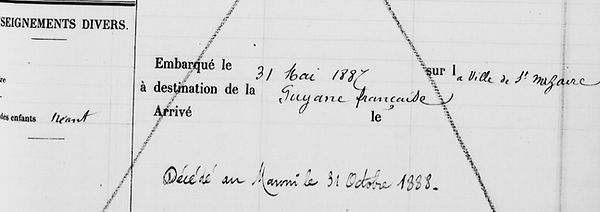 SEIGNEMENTS DIVERS.
Embarqué le 31 Mai 1887 sur la Ville de St Nazaire
à destination de la Guyane française
Arrivé le
des enfants néant
Décédé au Maroni le 31 Octobre 1888.